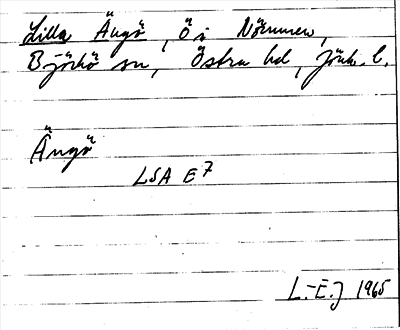 Lilla Ängö, Ö i Nömmen,
Björkö sn, Östra hd, Jönk. l.
Ängö
LSA E7
L.-E.J 1965